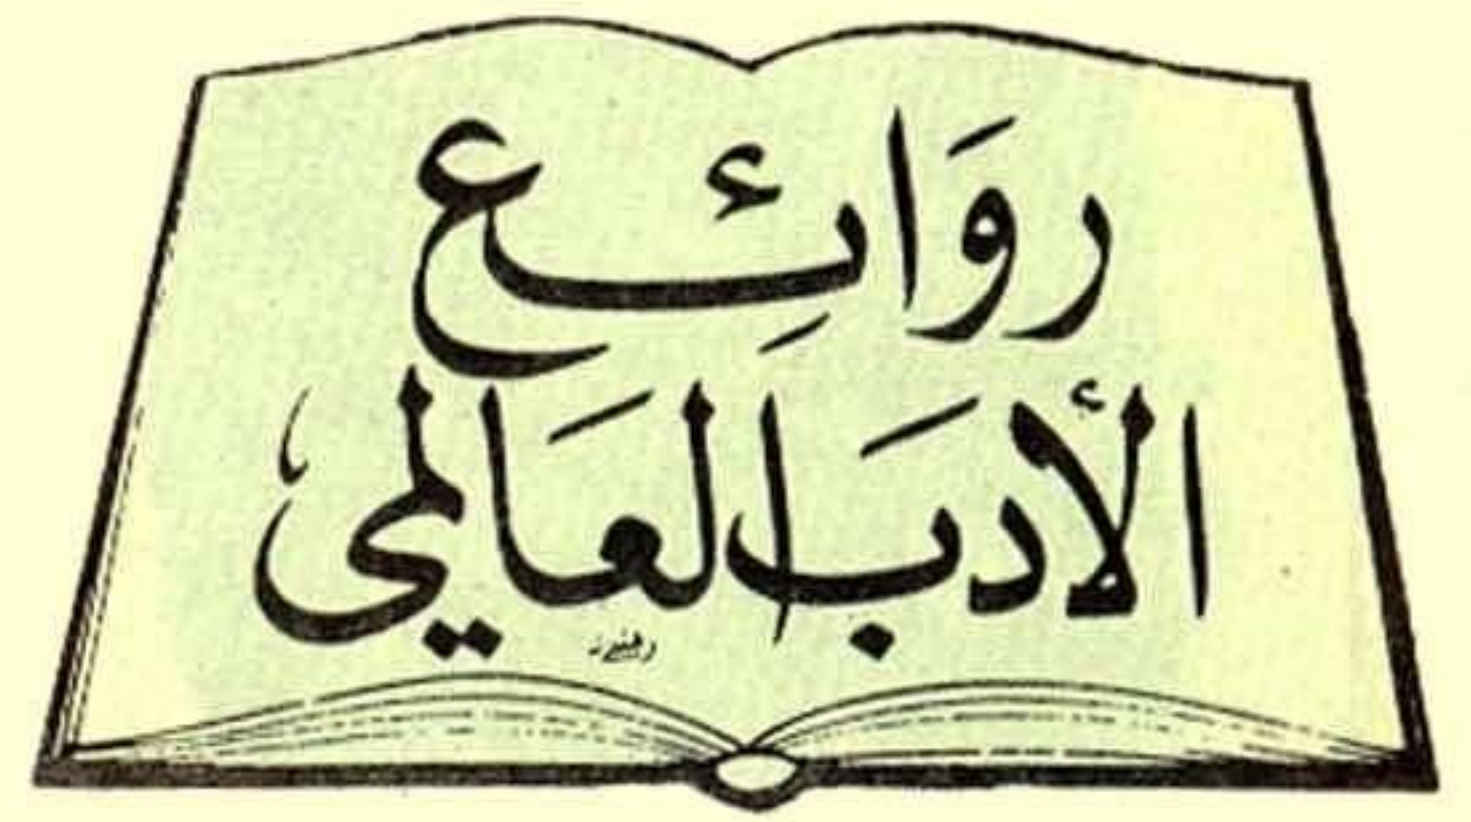 روَائِع
الأدَب العَالمي